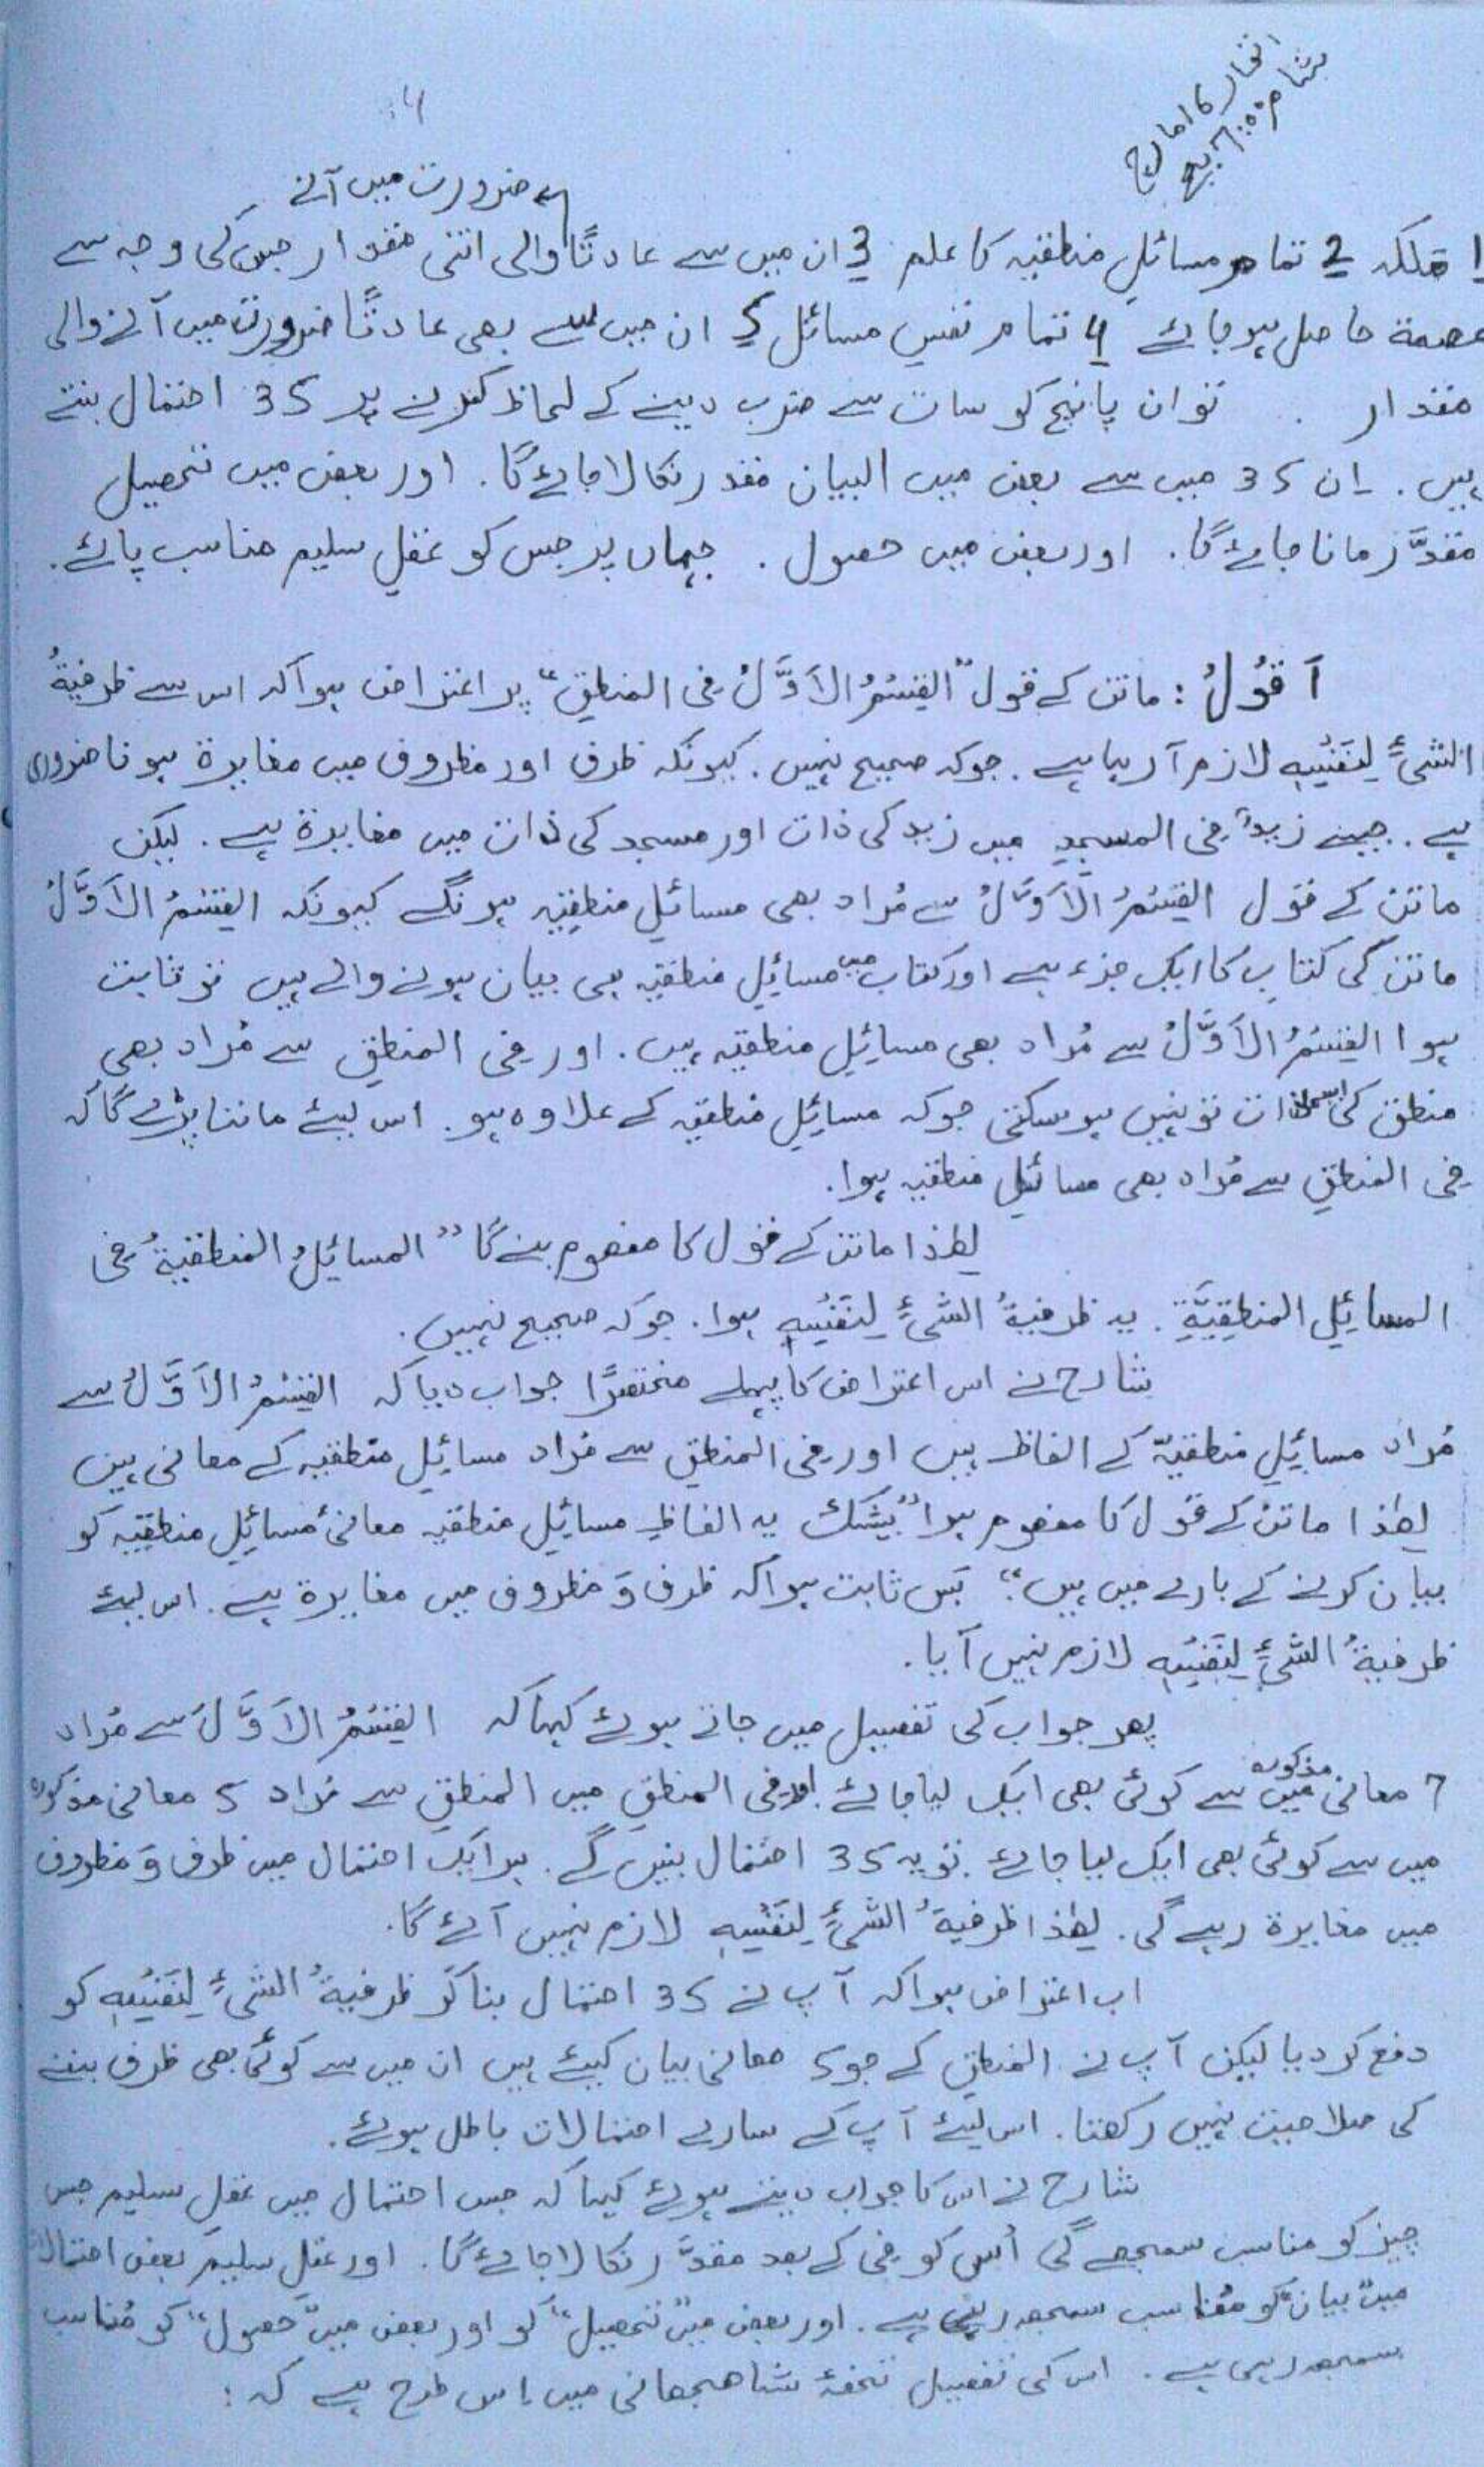 اتوار 16 مارچ
بشام 6:00 بجے
ضرورت میں آنے
1 ملکہ 2 تمام مسائلِ منطقیہ کا علم 3 ان میں سے عادتًا والی اتنی مقدار جس کی وجہ سے
عصمۃ حاصل ہو جائے 4 تمام نفسِ مسائل 5 ان میں سے بھی عادتًا ضرورت میں آنے والی
مقدار . تو ان پانچ کو سات سے ضرب دینے کے لحاظ کرنے پر 35 احتمال بنتے
ہیں. اِن 35 میں سے بعض میں البیان مقدر نکالا جائے گا. اور بعض میں تحصیل
مقدَّر مانا جائے گا. اور بعض میں حصول. جہاں پر جس کو عقلِ سلیم مناسب پائے.
اَقُولُ: ماتن کے قول "القِسْمُ الاَوَّلُ فی المنطقِ" پر اعتراض ہوا کہ اس سے ظرفیۃُ
الشیءِ لِنَفْسِہٖ لازم آرہا ہے. جو کہ صحیح نہیں. کیونکہ ظرف اور مظروف میں مغایرۃ ہونا ضروری
ہے. جیسے زیدٌ فی المسجدِ میں زید کی ذات اور مسجد کی ذات میں مغایرۃ ہے. لیکن
ماتن کے قول القِسْمُ الاَوَّلُ سے مُراد بھی مسائلِ منطقِیہ ہونگے کیونکہ القِسْمُ الاَوَّلُ
ماتن کی کتاب کا ایک جزء ہے اور کتاب میں مسائلِ منطقیہ ہی بیان ہونے والے ہیں تو ثابت
ہوا القِسْمُ الاَوَّلُ سے مُراد بھی مسائِلِ منطقیہ ہیں. اور فی المنطق سے مُراد بھی
منطق کی ذات تو نہیں ہو سکتی جو کہ مسائِلِ منطقیہ کے علاوہ ہو. اس لیئے ماننا پڑے گا کہ
فی المنطقِ سے مُراد بھی مسائلِ منطقیہ ہوا.
لھٰذا ماتن کے قول کا مفھوم بنے گا "المسائِلُ المنطقیۃُ فی
المسائِلِ المنطِقِیَّۃِ. یہ ظرفیۃُ الشیءِ لِنَفْسِہٖ ہوا. جو کہ صحیح نہیں.
شارح نے اس اعتراض کا پہلے مختصرًا جواب دیا کہ القِسْمُ الاَوَّلُ سے
مُراد مسائِلِ منطقیّہ کے الفاظ ہیں اور فی المنطقِ سے مُراد مسائِلِ منطقیہ کے معانی ہیں
لھٰذا ماتن کے قول کا مفھوم ہوا "بیشک یہ الفاظِ مسائِلِ منطقیہ معانئِ مسائِلِ منطقِیّہ کو
بیان کرنے کے بارے میں ہیں" پس ثابت ہوا کہ ظرف وَ مظروف میں مغایرۃ ہے. اس لیئے
ظرفیۃُ الشیءِ لِنَفْسِہٖ لازم نہیں آیا.
پھر جواب کی تفصیل میں جاتے ہوئے کہا کہ القِسْمُ الاَوَّلُ سے مُراد
7 معانی مذکورہ میں سے کوئی بھی ایک لیا جائے اور فی المنطقِ میں المنطقِ سے مُراد 5 معانی مذکورہ
میں سے کوئی بھی ایک لیا جائے. تو یہ 35 احتمال بنیں گے. ہر ایک احتمال میں ظرف وَ مظروف
میں مغایرۃ رہے گی. لھٰذا ظرفیۃُ الشیءِ لِنَفْسِہٖ لازم نہیں آئے گا.
اب اعتراض ہوا کہ آپ نے 35 احتمال بنا کر ظرفیۃُ الشیءِ لِنَفْسِہٖ کو
دفع کر دیا لیکن آپ نے المنطقِ کے جو 5 معانی بیان کیئے ہیں ان میں سے کوئی بھی ظرف بننے
کی صلاحیت نہیں رکھتا. اس لیئے آپ کے سارے احتمالات باطل ہوئے.
شارح نے اس کا جواب دیتے ہوئے کہا کہ جس احتمال میں عقلِ سلیم جس
چیز کو مناسب سمجھے گی اُس کو فی کے بعد مقدَّر نکالا جائے گا. اور عقلِ سلیم بعض احتمالات
میں "بیان" کو مُناسب سمجھ رہی ہے. اور بعض میں "تحصیل" کو اور بعض میں "حصول" کو مُناسب
سمجھ رہی ہے. اس کی تفصیل تحفۂ شاھجھانی میں اِس طرح ہے کہ: